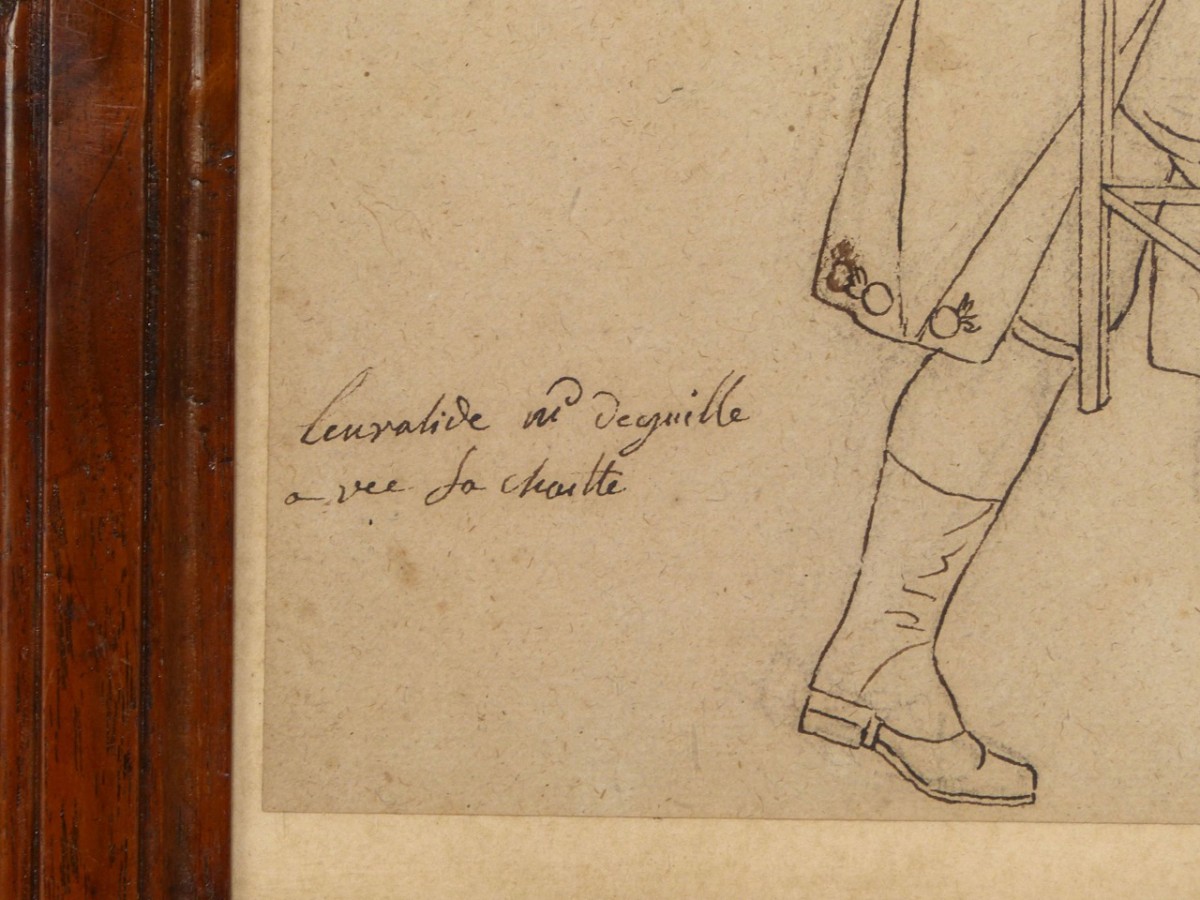 lenvalide mr deguille
a vec sa chaitte